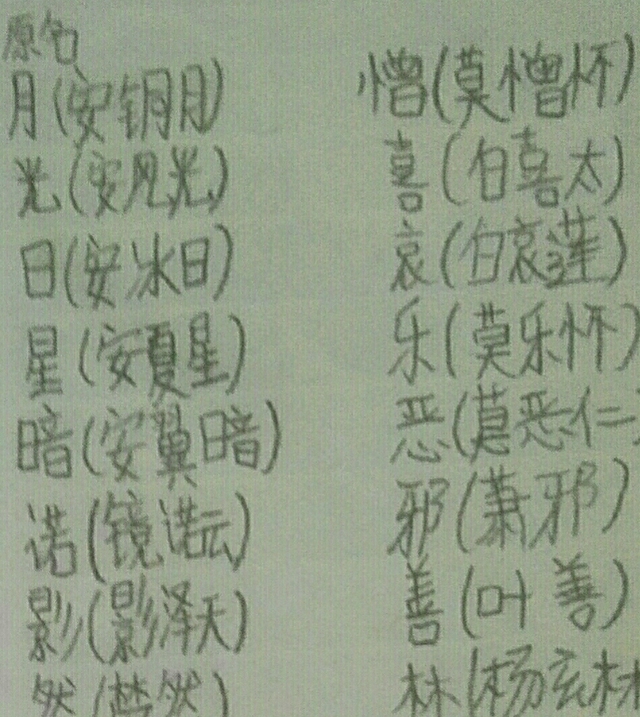 原名
月(安钥月)
光(安风光)
日(安冰日)
星(安夏星)
暗(安翼暗)
诺(镜诺云)
影(影泽天)
然(梦然)
憎(莫憎怀)
喜(白喜太)
哀(白哀莲)
乐(莫乐怀)
恶(莫恶仁
邪(萧邪)
善(叶善)
林(杨玄林